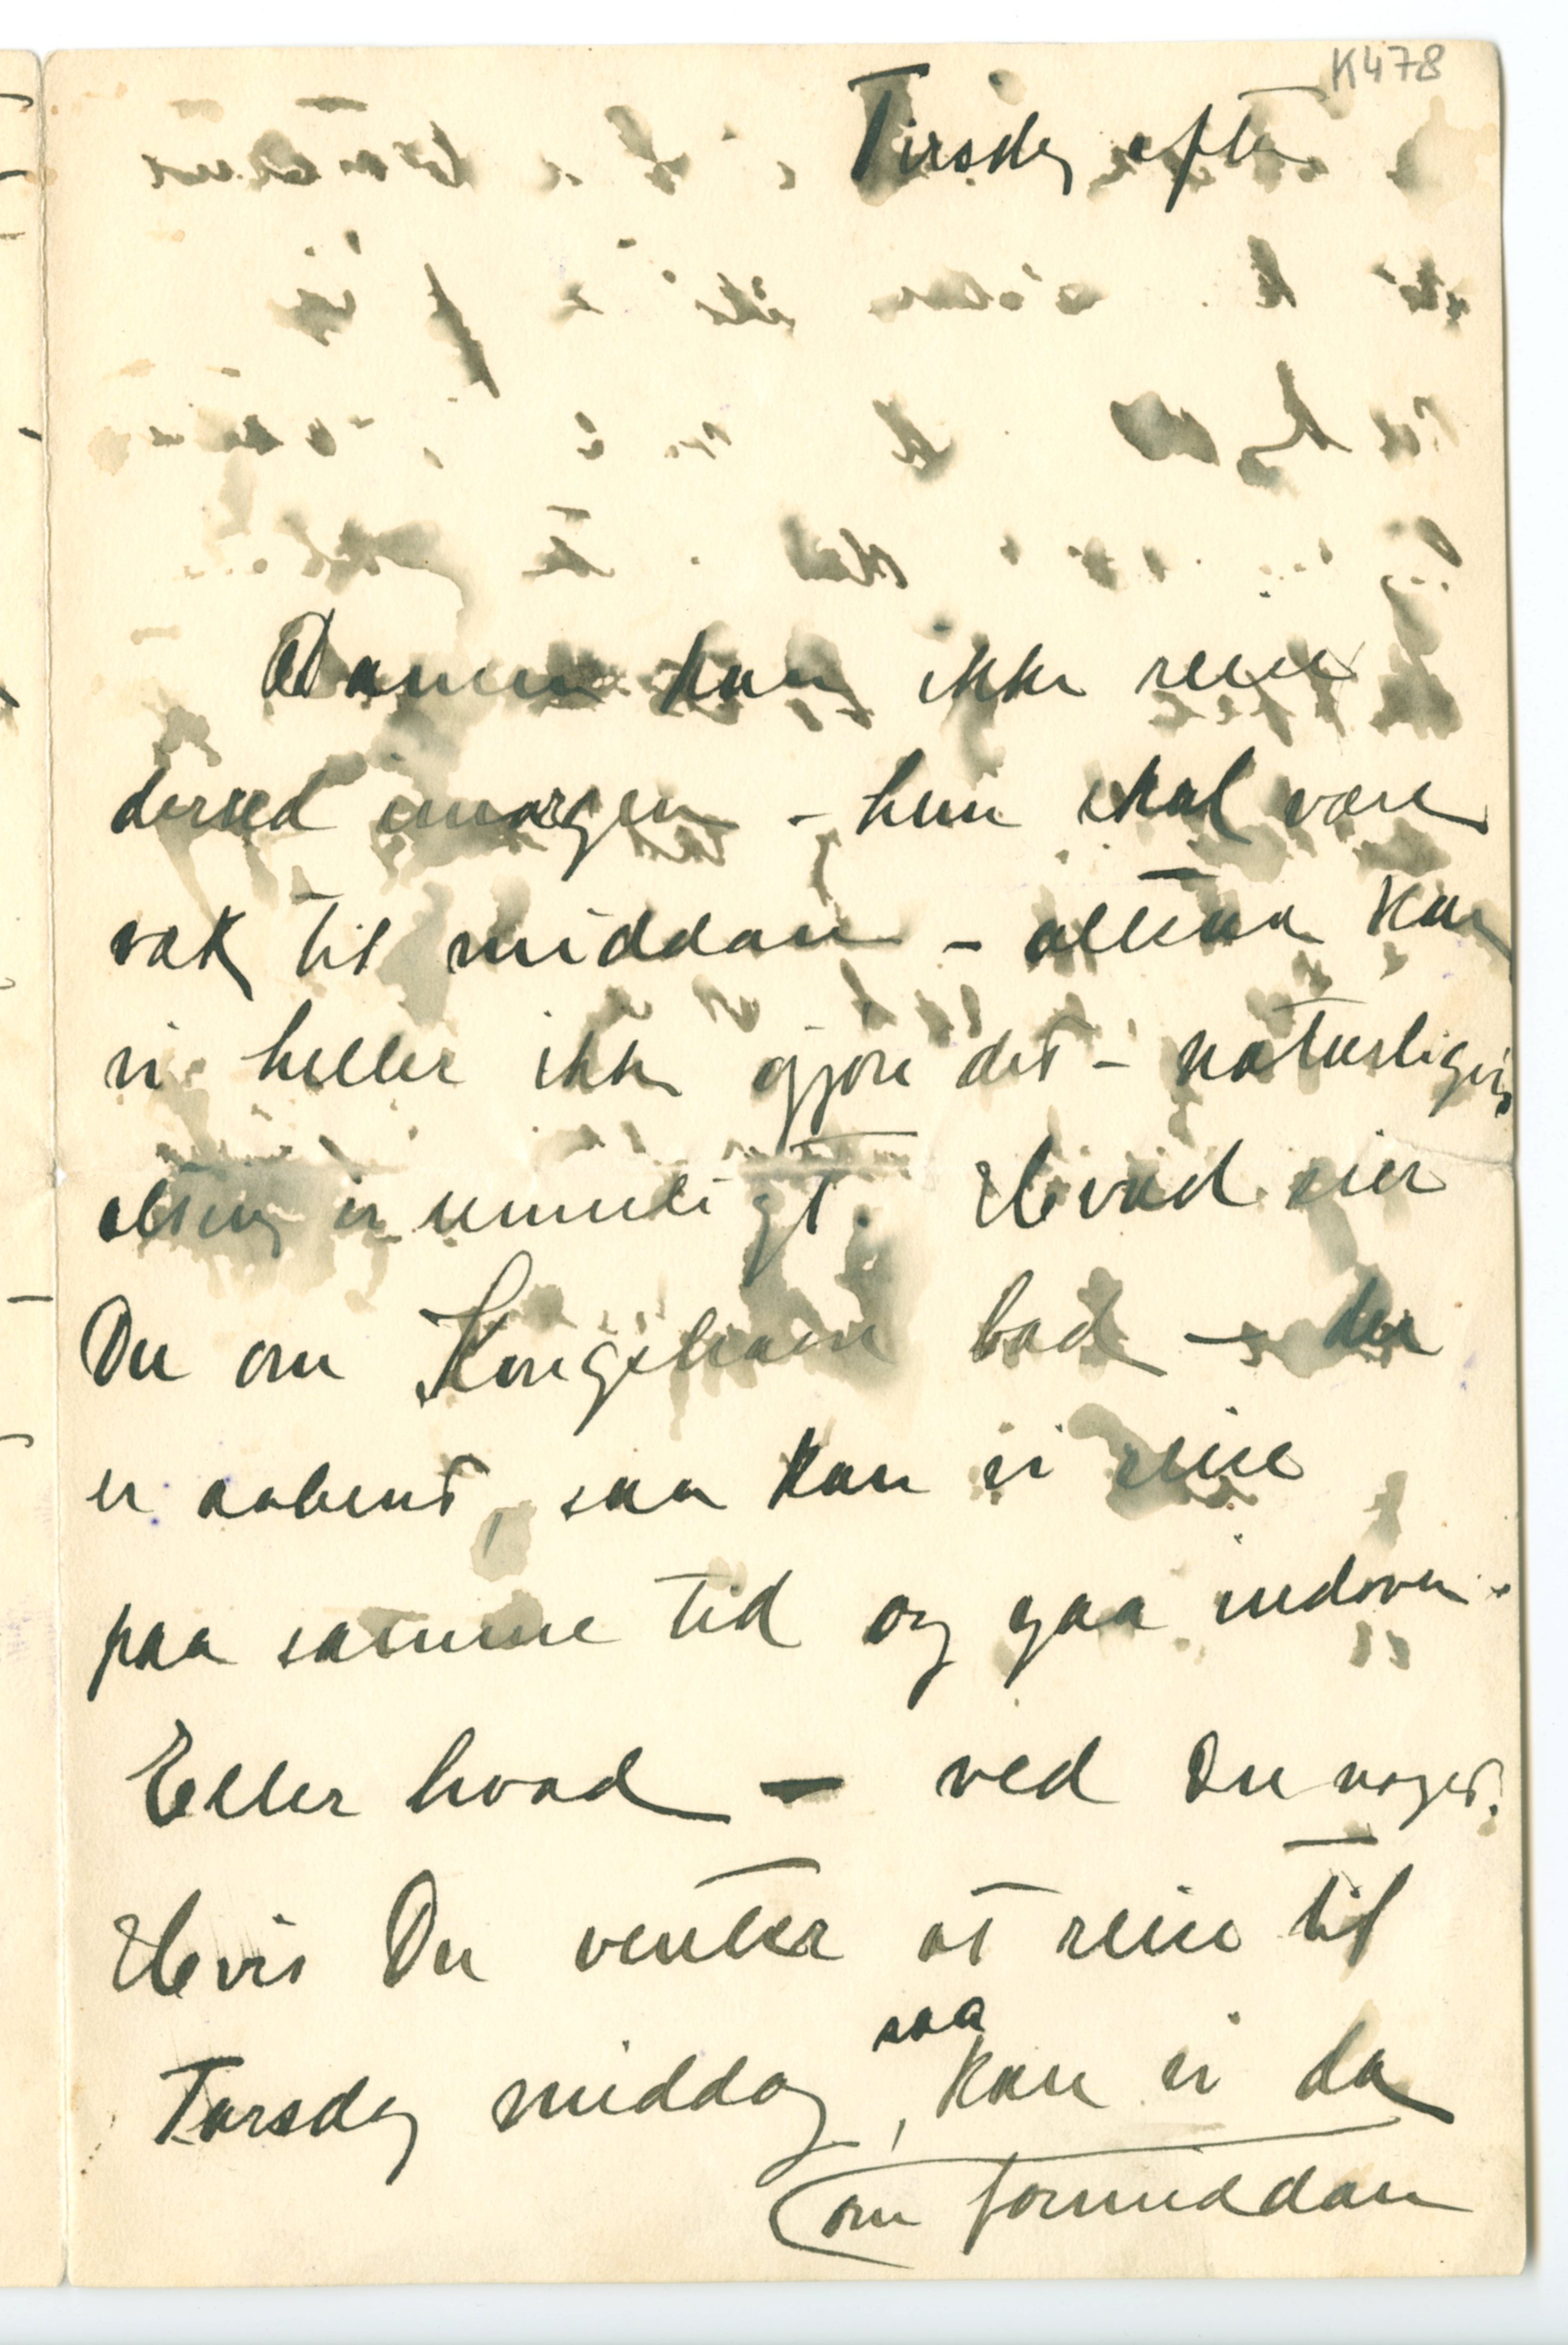 K478
Tirsdag efter
Damen kan ikke reise
derned imorgen – hun skal være
væk til middan – altsaa kan
vi heller ikke gjøre det – naturligvis
alting er umuligt. Hvad sier
Du om Kongshavn bad – der
er aabent, saa kan vi reise
paa samme tid og gaa indover.
Eller hvad – ved Du noget.
Hvis Du venter at reise til
saa
Torsdag middag, kan vi da
om formiddan